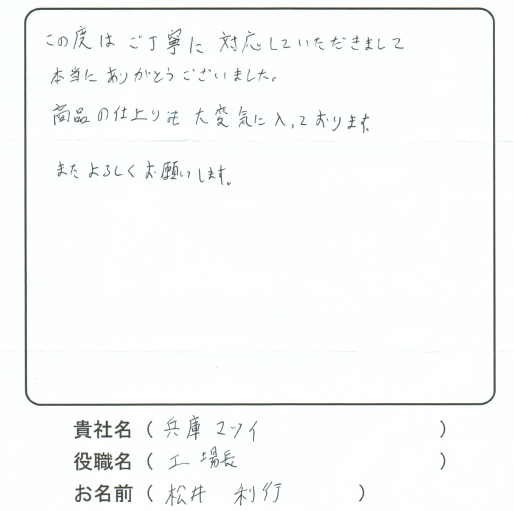 この度は ご丁寧に 対応していただきまして
本当に ありがとうございました。
商品の仕上りも 大変気に入っております
また よろしく お願いします。
貴社名（ 兵庫マツイ ）
役職名（ 工場長 ）
お名前（ 松井 利行 ）